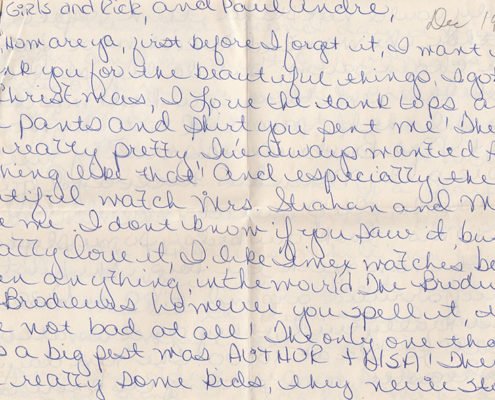 Girls and Rick, and Paul Andre,
Dec 1
, How are ya, first before I forget it, I want
nk you for the beautiful things, I go
Christmas, I love the tank tops a
pants and shirt you sent me! The
really pretty, I've always wanted
hing like that! And especially the
tiful watch Mrs. Strahan and M
e me. I dont know if you saw it, bu
ally love it, I like timex watches be
n anything, in the world. The Brodeu
Brodieurs however you spell it,
e not bad at all! The only one tha
s a big pest was AUTHOR + LISA! The
really some kids, they never st